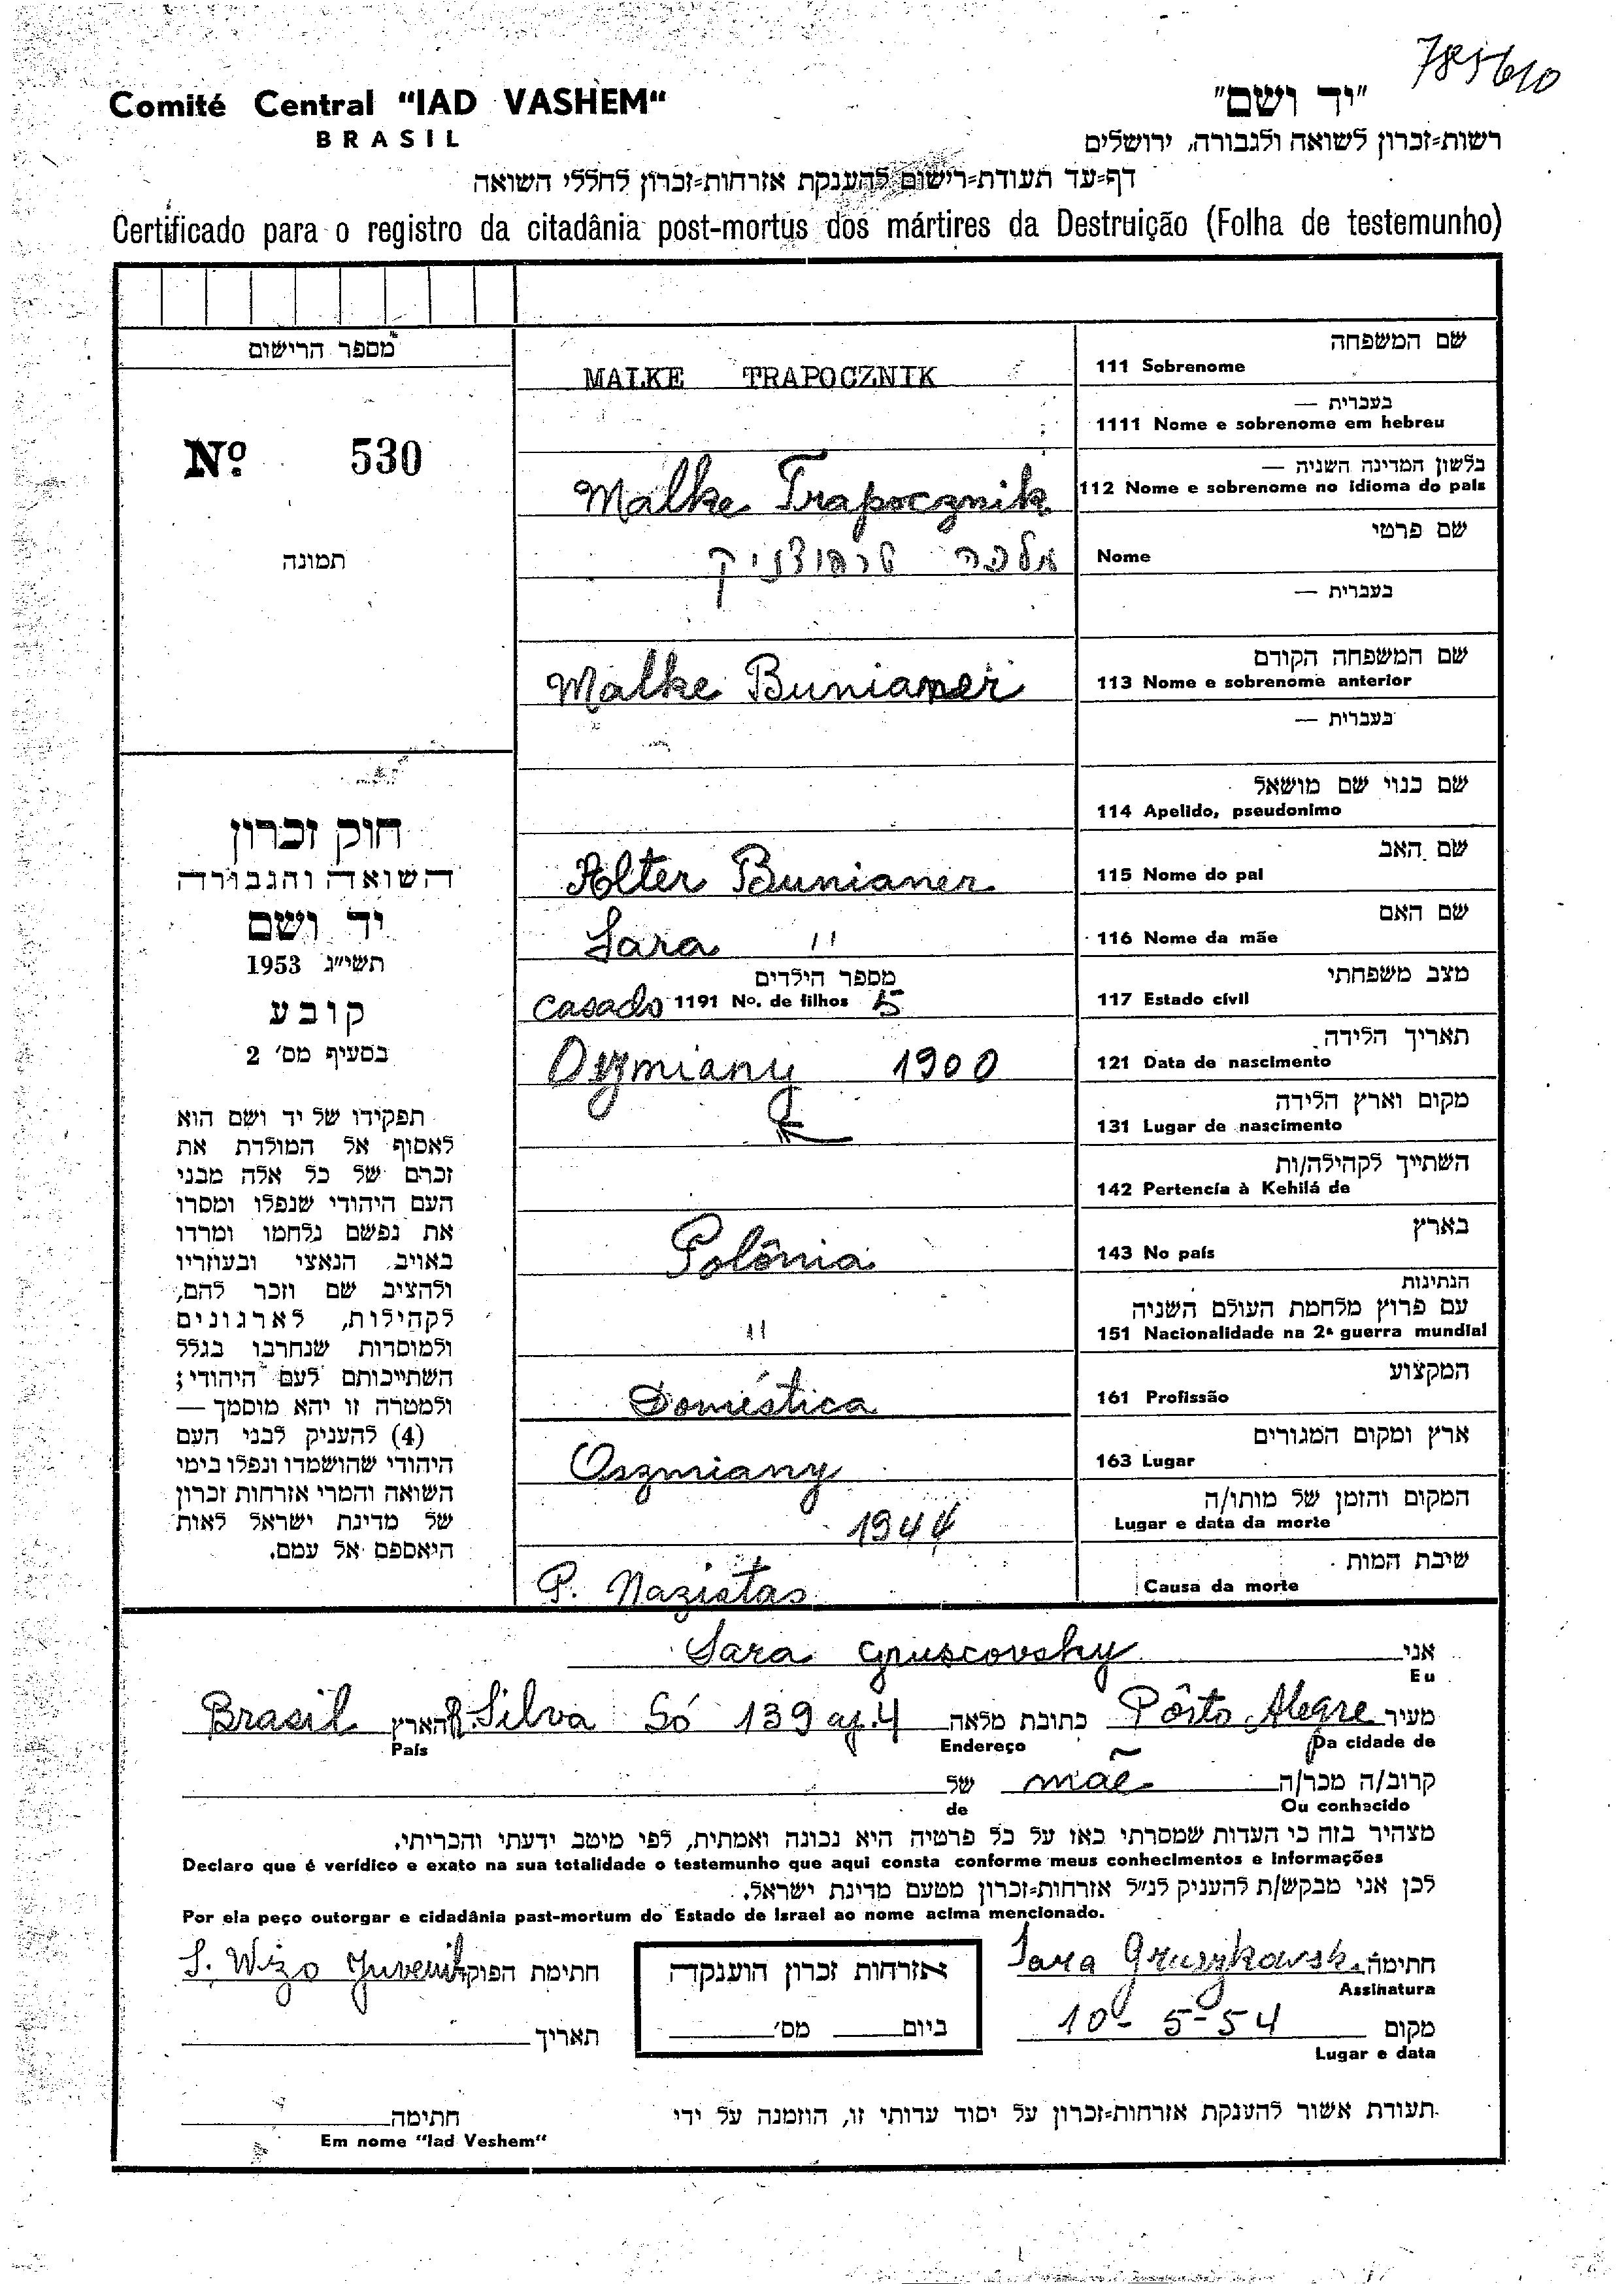 785610
Comité Central "IAD VASHEM"
BRASIL
"יד ושם"
רשות-זכרון לשואה ולגבורה, ירושלים
דף-עד תעודת-רישום להענקת אזרחות-זכרון לחללי השואה
Certificado para o registro da citadânia post-mortus dos mártires da Destruição (Folha de testemunho)
מספר הרישום
No. 530
תמונה
חוק זכרון
השואה והגבורה
יד ושם
תשי"ג 1953
קובע
בסעיף מס' 2
תפקידו של יד ושם הוא
לאסוף אל המולדת את
זכרם של כל אלה מבני
העם היהודי שנפלו ומסרו
את נפשם נלחמו ומרדו
באויב הנאצי ובעוזריו
ולהציב שם וזכר להם,
לקהילות, לארגונים
ולמוסדות שנחרבו בגלל
השתייכותם לעם היהודי;
ולמטרה זו יהא מוסמך —
(4) להעניק לבני העם
היהודי שהושמדו ונפלו בימי
השואה והמרי אזרחות זכרון
של מדינת ישראל לאות
היאספם אל עמם.
שם המשפחה
111 Sobrenome
MALKE TRAPOCZNIK
בעברית —
1111 Nome e sobrenome em hebreu
בלשון המדינה השניה —
112 Nome e sobrenome no idioma do país
Malke Trapocznik
שם פרטי
Nome
מלכה
בעברית —
שם המשפחה הקודם
113 Nome e sobrenome anterior
Malke Bunianer
בעברית —
שם כנוי שם מושאל
114 Apelido, pseudonimo
שם האב
115 Nome do pai
Alter Bunianer
שם האם
116 Nome da mãe
Sara "
מצב משפחתי
117 Estado cívil
casado
מספר הילדים
1191 No. de filhos 5
תאריך הלידה
121 Data de nascimento
Oszmiany 1900
מקום וארץ הלידה
131 Lugar de nascimento
השתייך לקהילה/ות
142 Pertencía à Kehilá de
בארץ
143 No país
Polônia
הנתינות
עם פרוץ מלחמת העולם השניה
151 Nacionalidade na 2ª guerra mundial
"
המקצוע
161 Profissão
Doméstica
ארץ ומקום המגורים
163 Lugar
Oszmiany
המקום והזמן של מותו/ה
Lugar e data da morte
1944
שיבת המות
Causa da morte
P. Nazistas
אני Sara Gruscovshy
Eu
מעיר Pôrto Alegre כתובת מלאה R. Silva Só 139 ap. 4 הארץ Brasil
Da cidade de Endereço País
קרוב/ה מכר/ה mãe של
Ou conhecido de
מצהיר בזה כי העדות שמסרתי כאן על כל פרטיה היא נכונה ואמתית, לפי מיטב ידעתי והכריתי.
Declaro que é verídico e exato na sua totalidade o testemunho que aqui consta conforme meus conhecimentos e informações
לכן אני מבקש/ת להעניק לנ"ל אזרחות-זכרון מטעם מדינת ישראל.
Por ela peço outorgar e cidadânia past-mortum do Estado de Israel ao nome acima mencionado.
חתימה Sara Gruszkovsk
Assinatura
אזרחות זכרון הוענקה
ביום מס'
חתימת הפוקד S. Wizo Juvenil
מקום 10-5-54
Lugar e data
תאריך
תעודת אשור להענקת אזרחות-זכרון על יסוד עדותי זו, הוזמנה על ידי
חתימה
Em nome "Iad Veshem"